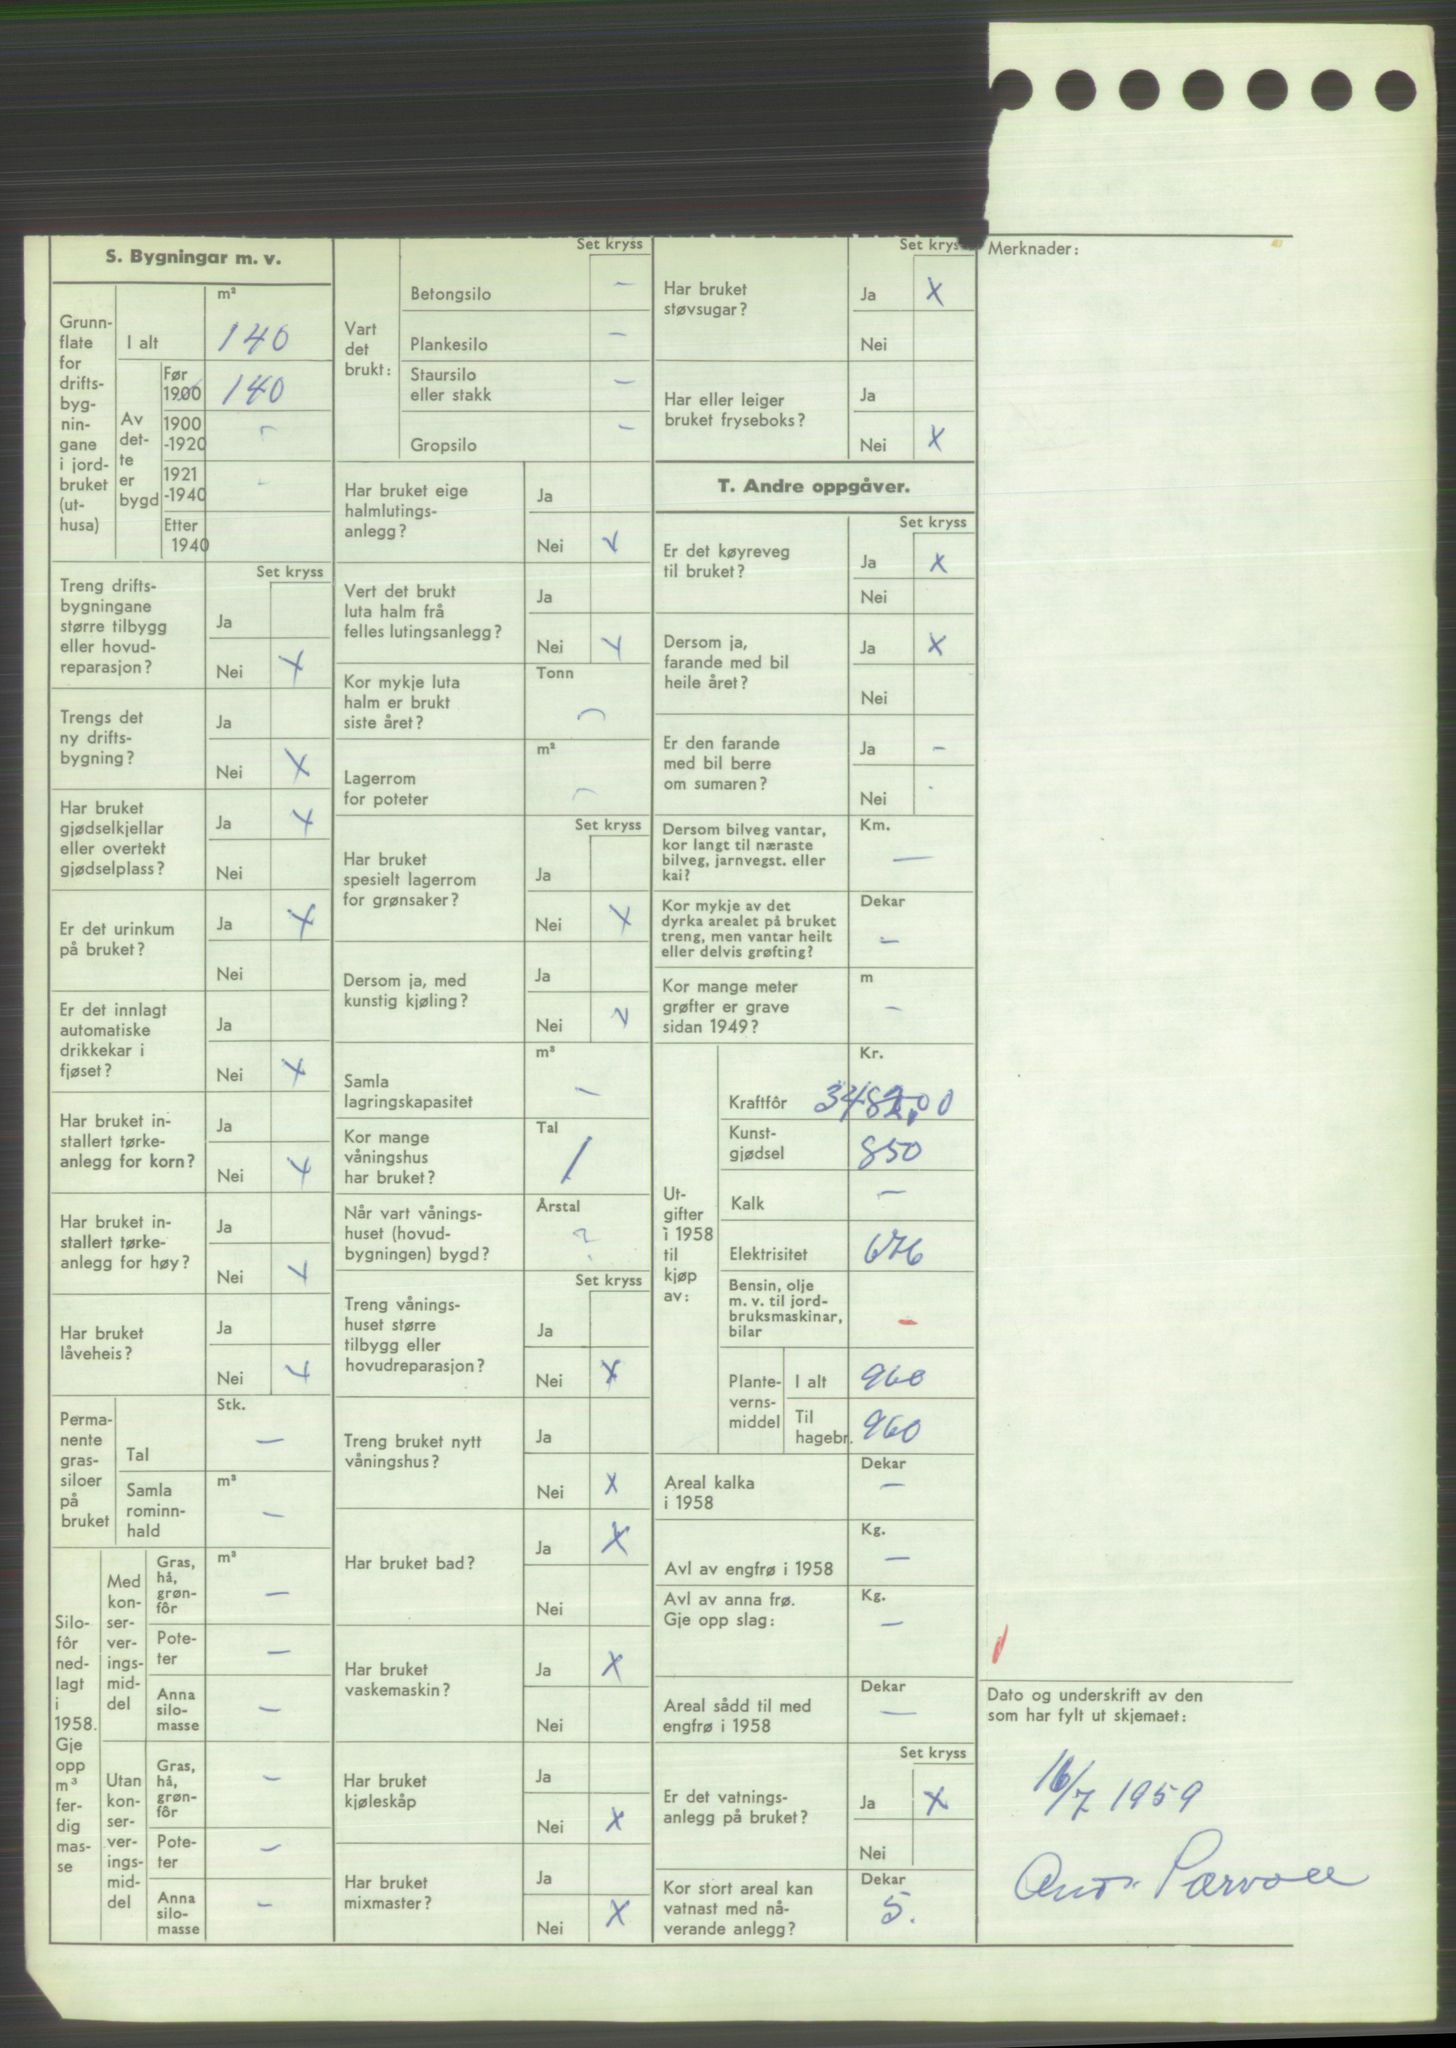 S. Bygningar m. v.
Grunn-
flate
for
drifts-
byg-
nin-
gane
i jord-
bruket
(ut-
husa)
m²
I alt
140
Av
det-
te
er
bygd
Før
1900
140
1900
-1920
-
1921
-1940
-
Etter
1940
Set kryss
Treng drifts-
bygningane
større tilbygg
eller hovud-
reparasjon?
Ja
Nei X
Trengs det
ny drifts-
bygning?
Ja
Nei X
Har bruket
gjødselkjellar
eller overtekt
gjødselplass?
Ja X
Nei
Er det urinkum
på bruket?
Ja X
Nei
Er det innlagt
automatiske
drikkekar i
fjøset?
Ja
Nei X
Har bruket in-
stallert tørke-
anlegg for korn?
Ja
Nei X
Har bruket in-
stallert tørke-
anlegg for høy?
Ja
Nei X
Har bruket
låveheis?
Ja
Nei X
Perma-
nente
gras-
siloer
på
bruket
Stk.
Tal
-
m³
Samla
rominn-
hald
-
Silo-
fôr
ned-
lagt
i
1958.
Gje
opp
m³
fer-
dig
mas-
se
Med
kon-
ser-
ver-
ings-
mid-
del
m³
Gras,
hå,
grøn-
fôr
-
Pote-
ter
-
Anna
silo-
masse
-
Utan
kon-
ser-
ver-
ings-
mid-
del
Gras,
hå,
grøn-
fôr
-
Pote-
ter
-
Anna
silo-
masse
-
Set kryss
Vart
det
brukt:
Betongsilo -
Plankesilo -
Staursilo
eller stakk -
Gropsilo -
Har bruket eige
halmlutings-
anlegg?
Ja
Nei X
Vert det brukt
luta halm frå
felles lutingsanlegg?
Ja
Nei X
Kor mykje luta
halm er brukt
siste året?
Tonn
-
Lagerrom
for poteter
m²
-
Set kryss
Har bruket
spesielt lagerrom
for grønsaker?
Ja
Nei X
Dersom ja, med
kunstig kjøling?
Ja
Nei X
Samla
lagringskapasitet
m³
-
Kor mange
våningshus
har bruket?
Tal
1
Når vart vånings-
huset (hovud-
bygningen) bygd?
Årstal
?
Set kryss
Treng vånings-
huset større
tilbygg eller
hovudreparasjon?
Ja
Nei X
Treng bruket nytt
våningshus?
Ja
Nei X
Har bruket bad?
Ja X
Nei
Har bruket
vaskemaskin?
Ja X
Nei
Har bruket
kjøleskåp
Ja
Nei X
Har bruket
mixmaster?
Ja
Nei X
Set kryss
Har bruket
støvsugar?
Ja X
Nei
Har eller leiger
bruket fryseboks?
Ja
Nei X
T. Andre oppgåver.
Set kryss
Er det køyreveg
til bruket?
Ja X
Nei
Dersom ja,
farande med bil
heile året?
Ja X
Nei
Er den farande
med bil berre
om sumaren?
Ja -
Nei -
Dersom bilveg vantar,
kor langt til næraste
bilveg, jarnvegst. eller
kai?
Km.
-
Kor mykje av det
dyrka arealet på bruket
treng, men vantar heilt
eller delvis grøfting?
Dekar
-
Kor mange meter
grøfter er grave
sidan 1949?
m
-
Ut-
gifter
i 1958
til
kjøp
av:
Kr.
Kraftfôr
Kunst-
gjødsel 850
Kalk -
Elektrisitet 676
Bensin, olje
m. v. til jord-
bruksmaskinar,
bilar
-
Plante-
verns-
middel
I alt 960
Til
hagebr. 960
Areal kalka
i 1958
Dekar
-
Avl av engfrø i 1958
Kg.
-
Avl av anna frø.
Gje opp slag:
Kg.
-
Areal sådd til med
engfrø i 1958
Dekar
-
Set kryss
Er det vatnings-
anlegg på bruket?
Ja X
Nei
Kor stort areal kan
vatnast med nå-
verande anlegg?
Dekar
5.
Merknader:
Dato og underskrift av den
som har fylt ut skjemaet:
16/7 1959